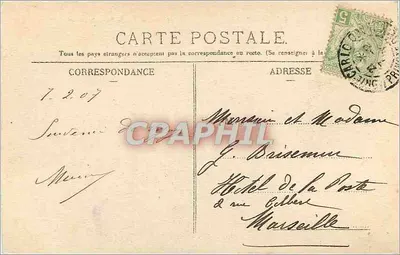 CARTE POSTALE
Tous les pays étrangers n'acceptent pas la correspondance au recto. (Se renseigner à la
CORRESPONDANCE
ADRESSE
7.2.07
Souvenir de
CPAPHIL
Monsieur et Madame
G.
Hotel de la Poste
2 rue Gilbert
Marseille
5